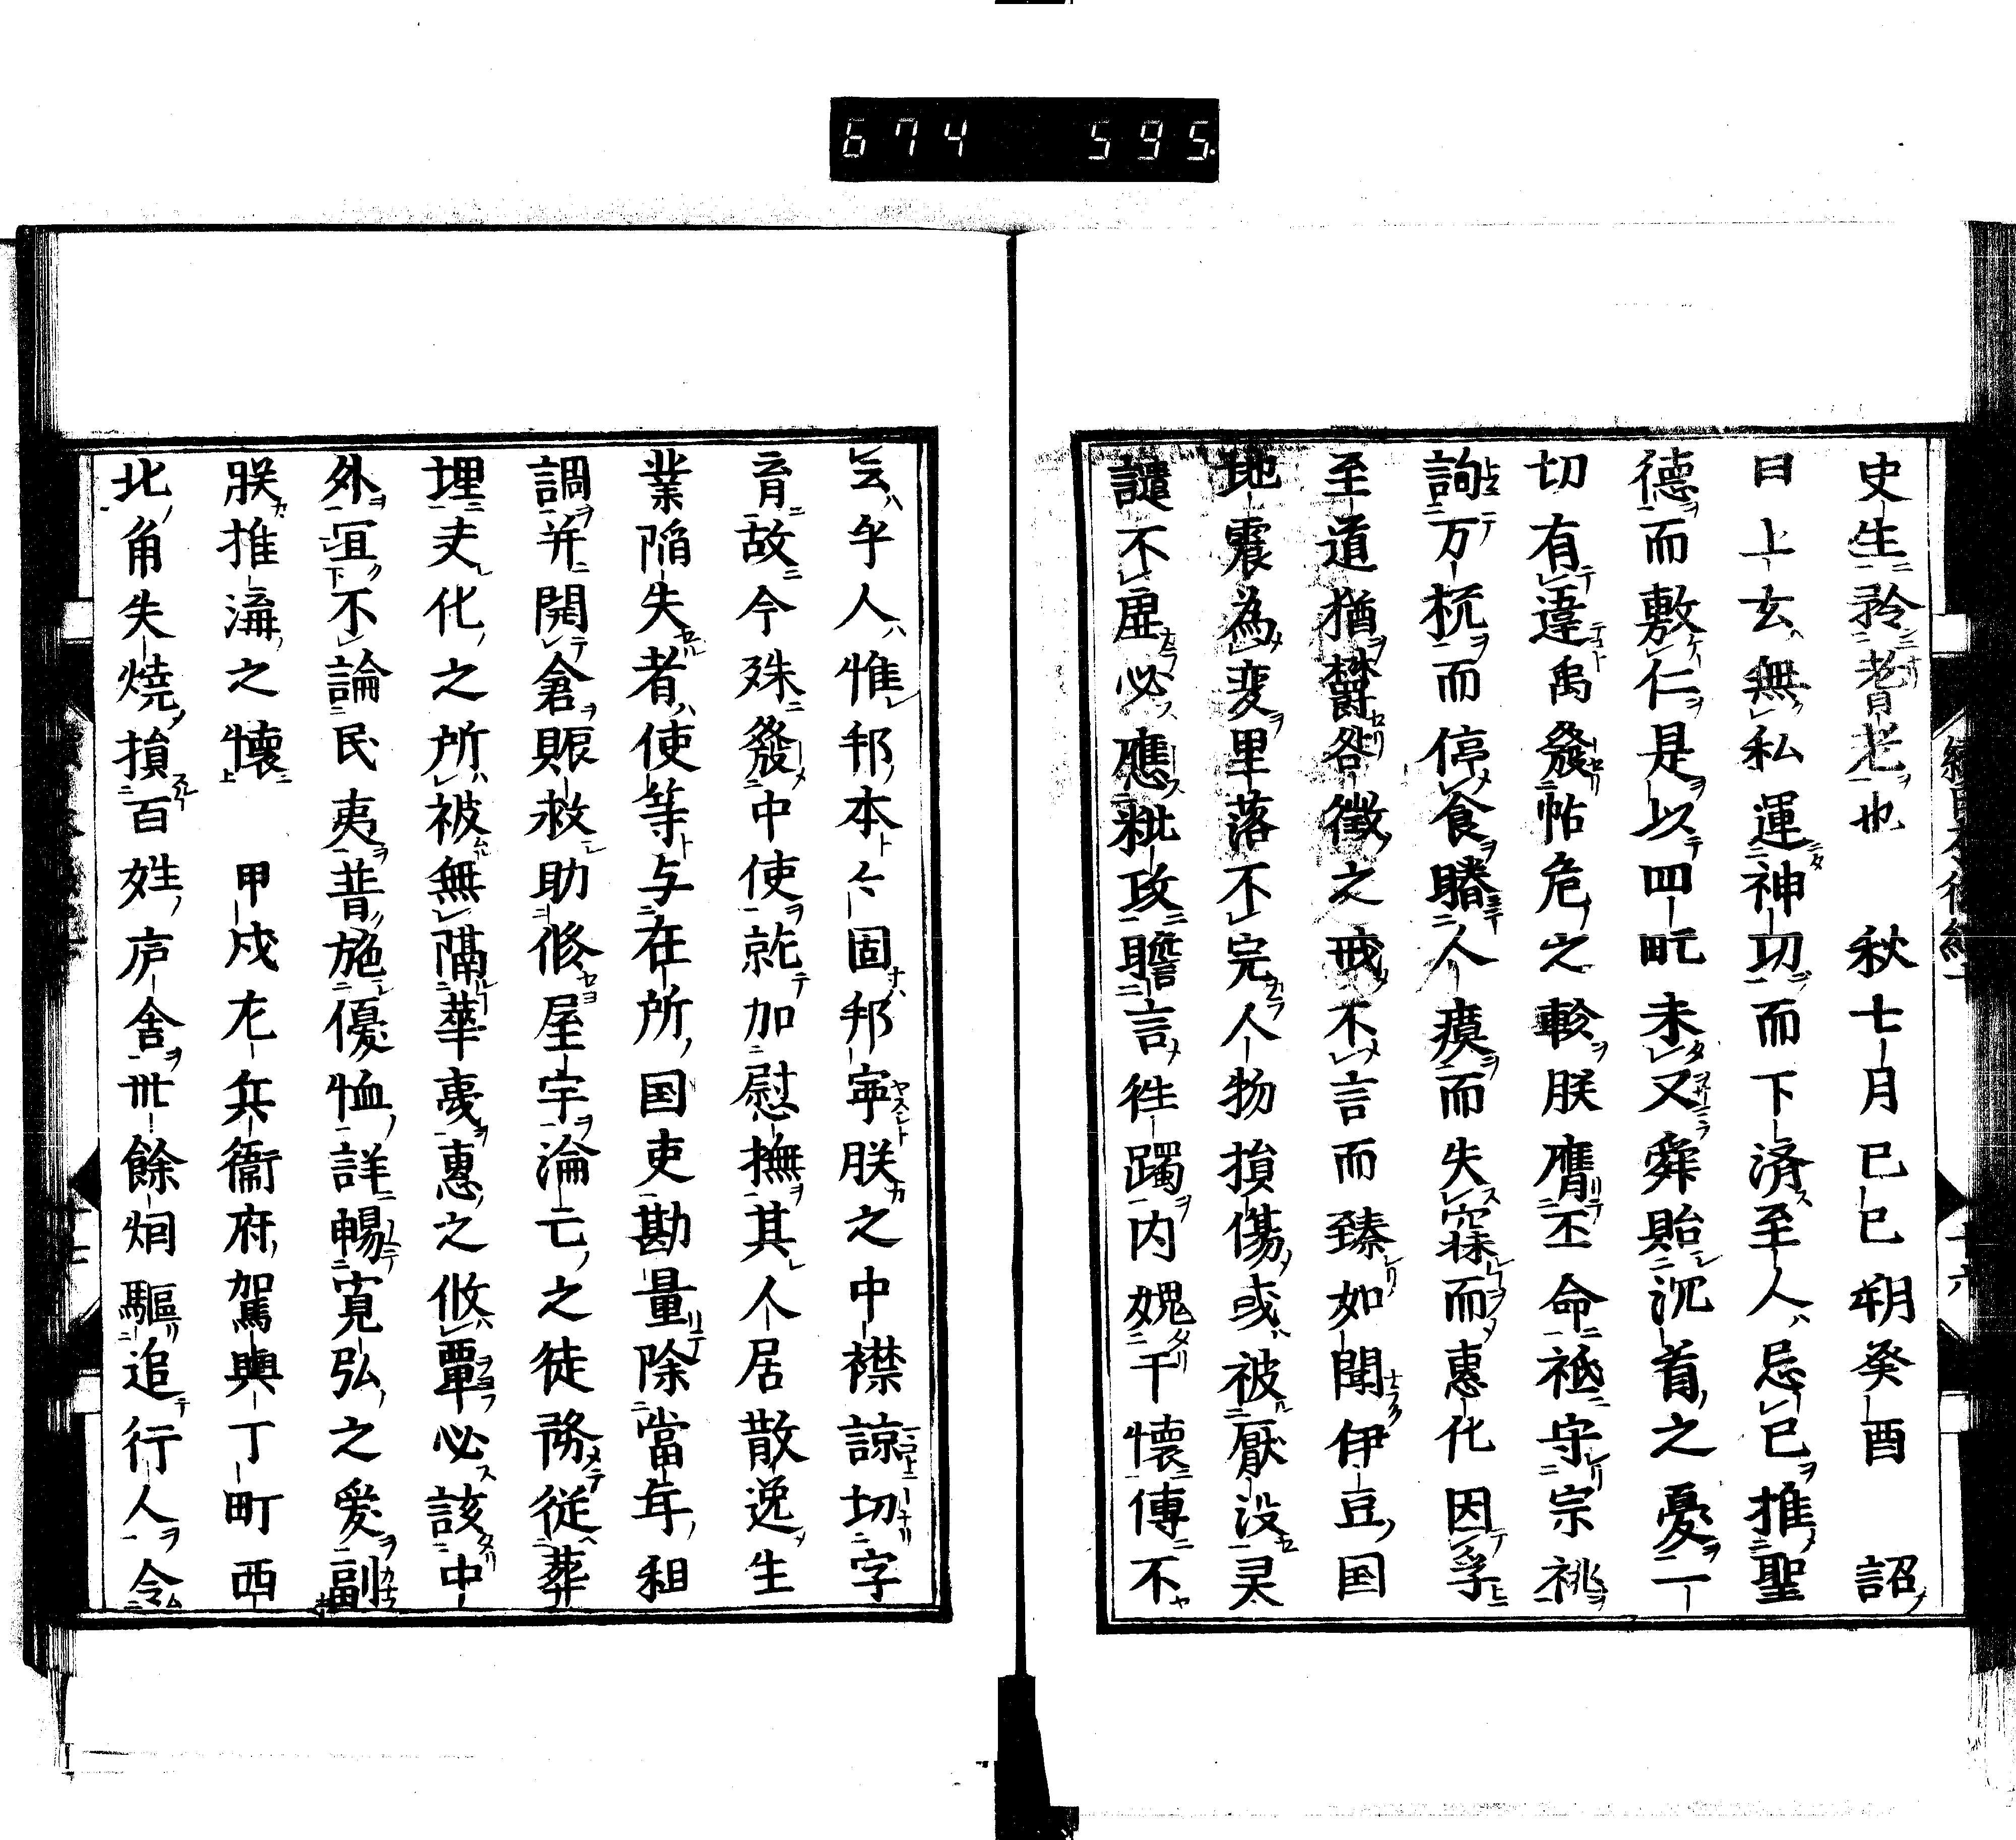 674 595.
史生矜耆老也 秋七月己巳朔癸酉 詔
曰上玄無私運神功而下済至人忌已推聖
德而敷仁是以四甿未又舜貽沉首之憂一
切有違禹發帖危之軫朕膺丕命祗守宗祧
詢万枕而停食瞎人瘼而失寐而惠化因孚
至道猶欝咎徴之戒不言而臻如聞伊豆国
地震為変里落不完人物損傷或被厭没灵
譴不虚必應粃政瞻言往躅内媿千懐傳不
云乎人惟邦本々固邦寧朕之中襟諒切字
育故今殊發中使就加慰撫其人居散逸生
業陥失者使等与在所国吏勘量除當年租
調并開倉賑救助修屋宇淪亡之徒務從葬
埋夫化之所被無隔華夷惠之攸覃必該中
外冝不論民夷普施優恤詳暢寛弘之愛副
朕推溝之懐 甲戍左兵衞府駕輿丁町西
北角失燒損百姓庐舎丗餘烟驅追行人令